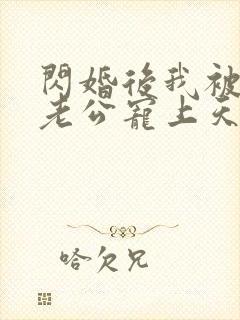 閃婚後我被
老公寵上天
哈欠兄